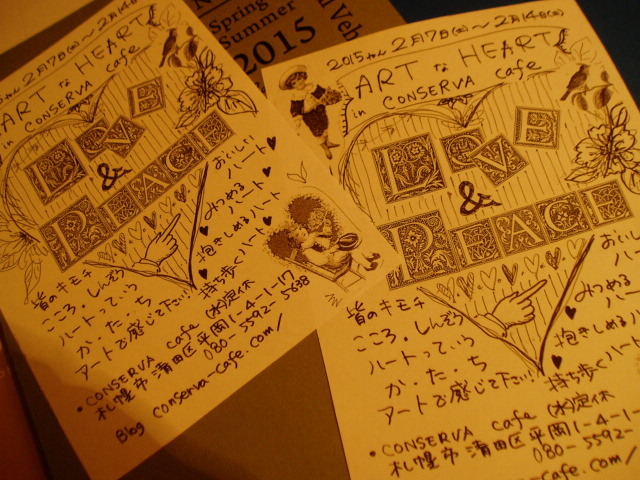 Spring
Summer
2015
Veh
2月7日(土)〜2月14日(土)
ART な HEART
in CONSERVA cafe
LOVE
&
PEACE
おいしいハート
♥みつめるハート
♥抱きしめるハート
♥持ち歩くハート
皆のキモチ
こころ・しんぞう
ハートっていう
か・た・ち
アートで感じて下さい!
•CONSERVA cafe (水)定休
札幌市清田区平岡1-4-1-17
080-5592-5638
Blog conserva-cafe.com/
2015年 2月7日(土)〜2月14日(土)
ART な HEART
in CONSERVA cafe
LOVE
&
PEACE
おいしい
ハート
♥みつめる
ハート
♥抱きしめるハ
♥持ち歩くハート
皆のキモチ
こころ・しんぞう
ハートっていう
か・た・ち
アートで感じて下さい!
•CONSERVA cafe (水)定休
札幌市清田区平岡1-4-1-
080-5592-
-cafe.com/